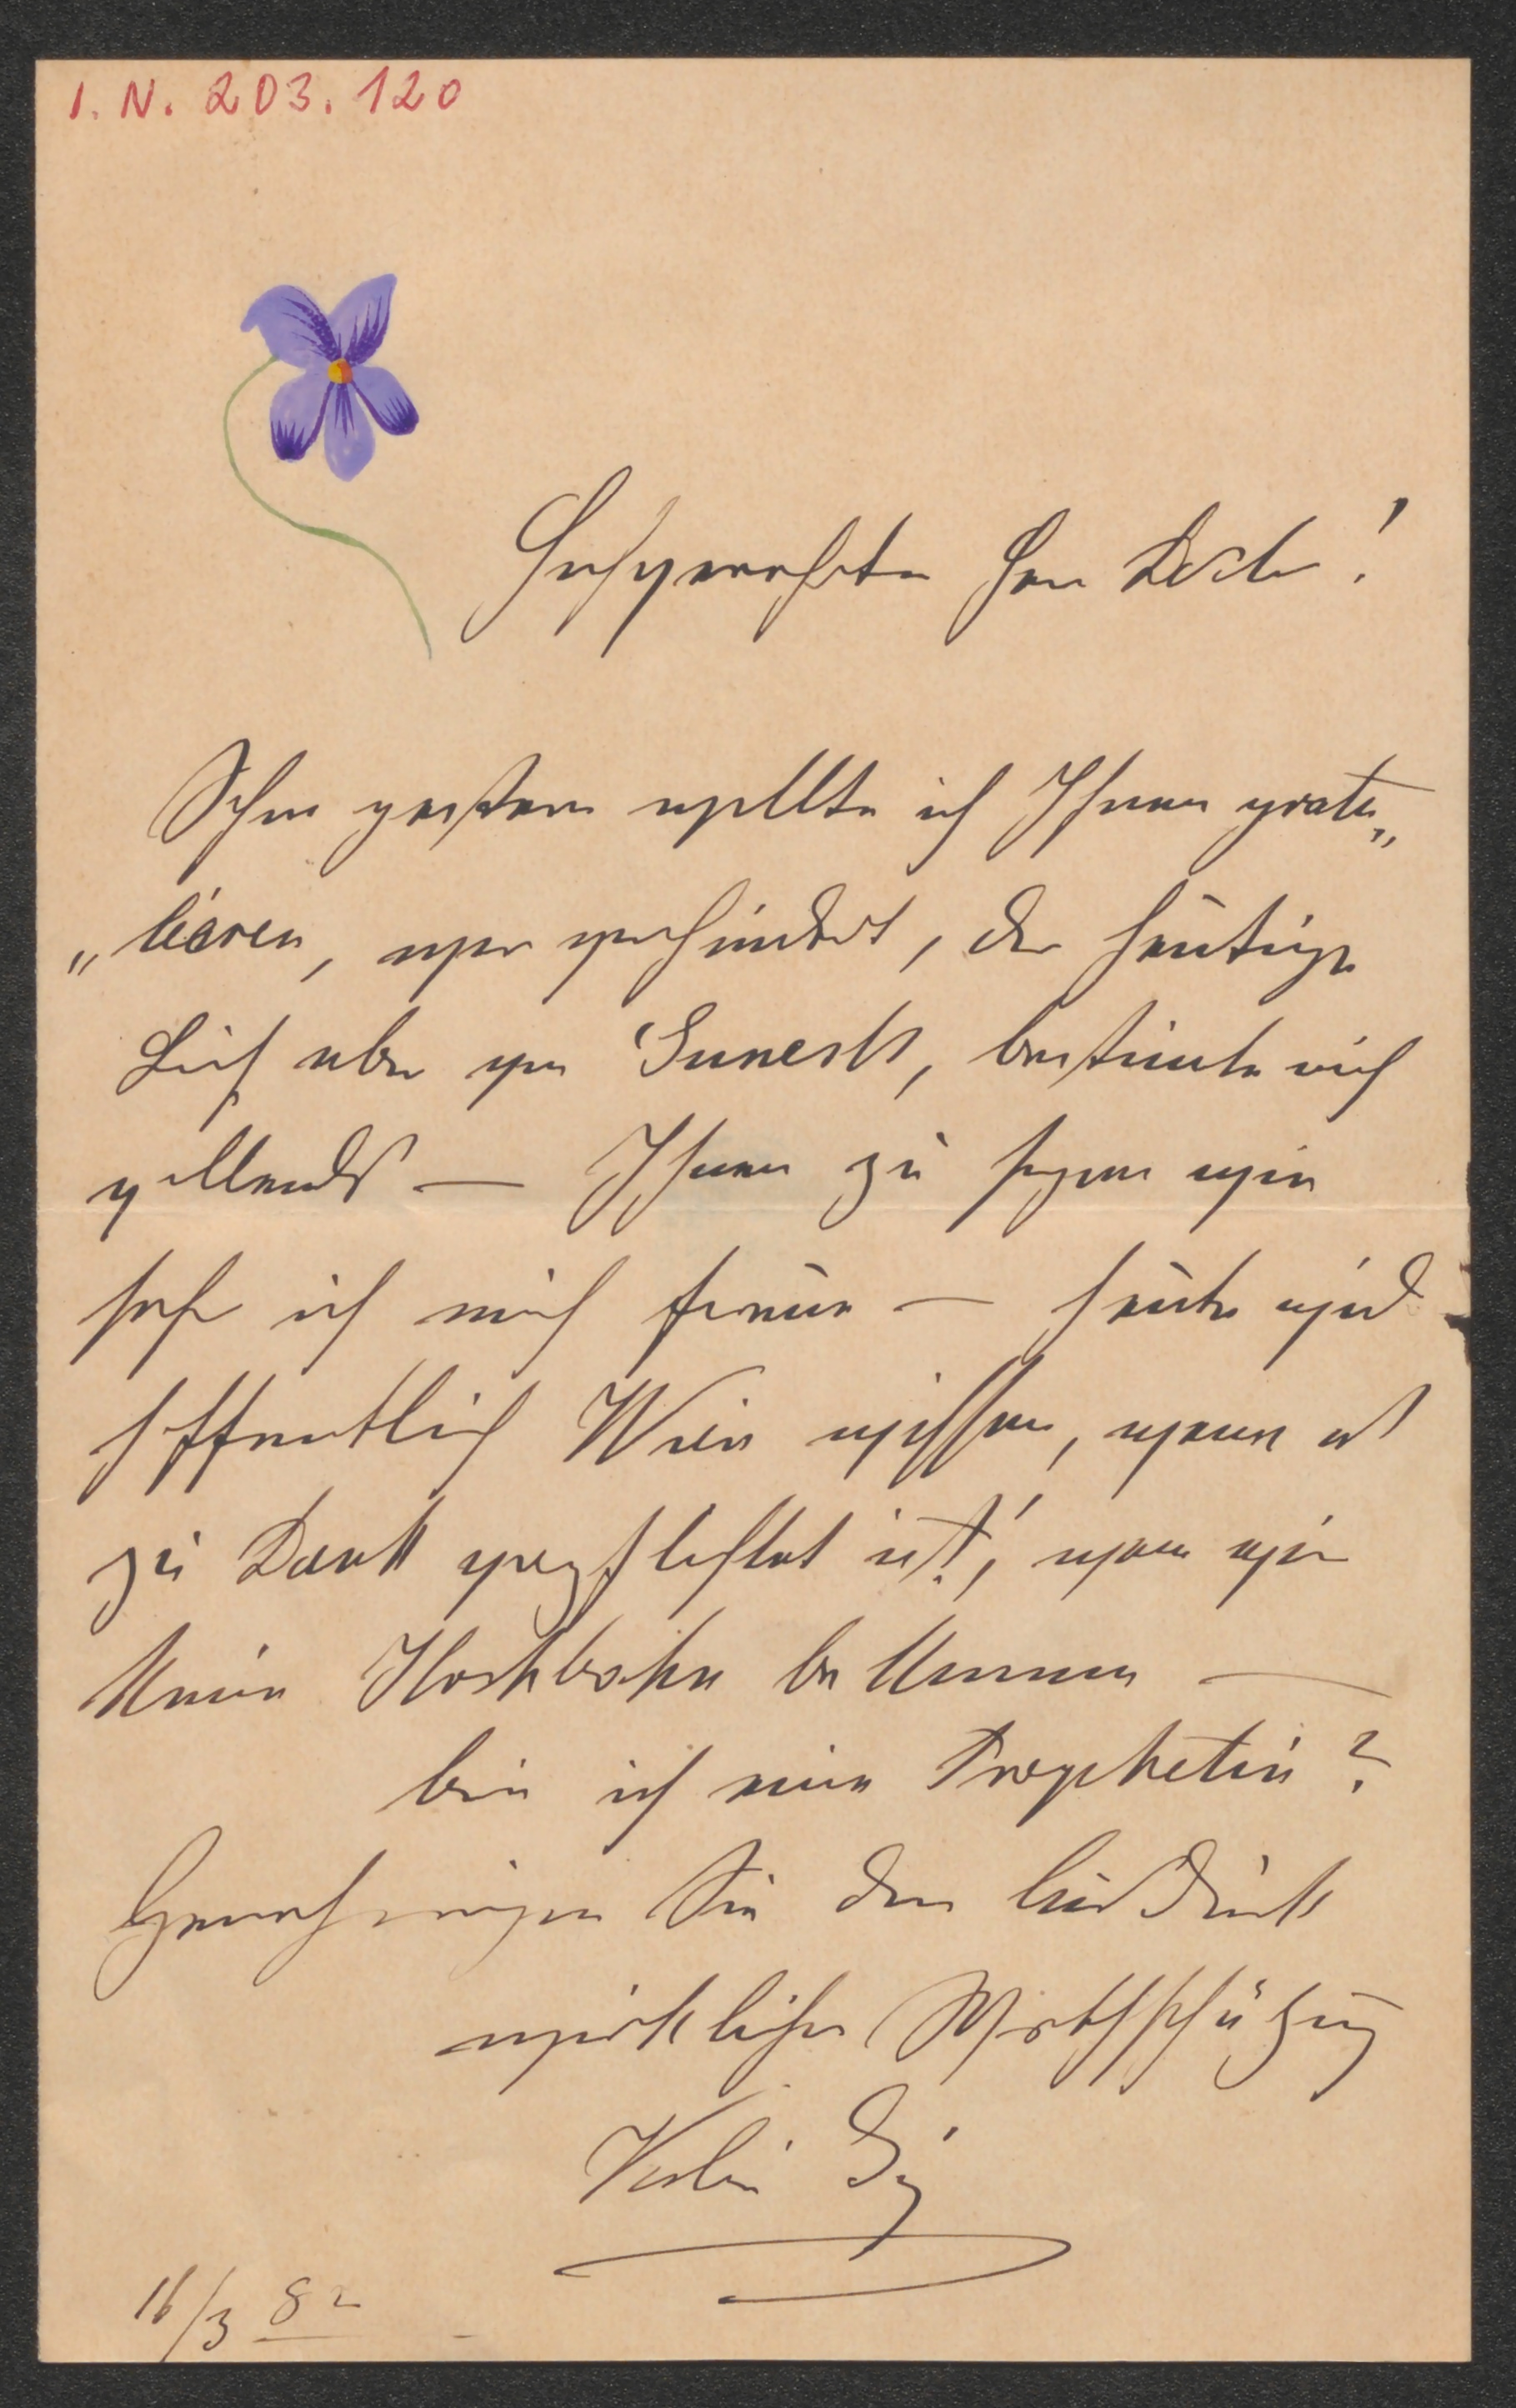 I. N. 203.120
Hochgeehrter Herr Doctor!
Schon gestern wollte ich Ihnen gratu„
„lieren, war verhindert, der heutige
aber von bestimte mich
vollends — Ihnen zu sagen wie
sehr ich mich freue — heute wird
hoffentlich Wien wissen, wem es
zu Dank verpflichtet ist!, wenn wir
keine bekommen —
bin ich eine Prophetin?
Genehmigen Sie den Ausdruck
wirklicher Wertschätzung
16/3 82